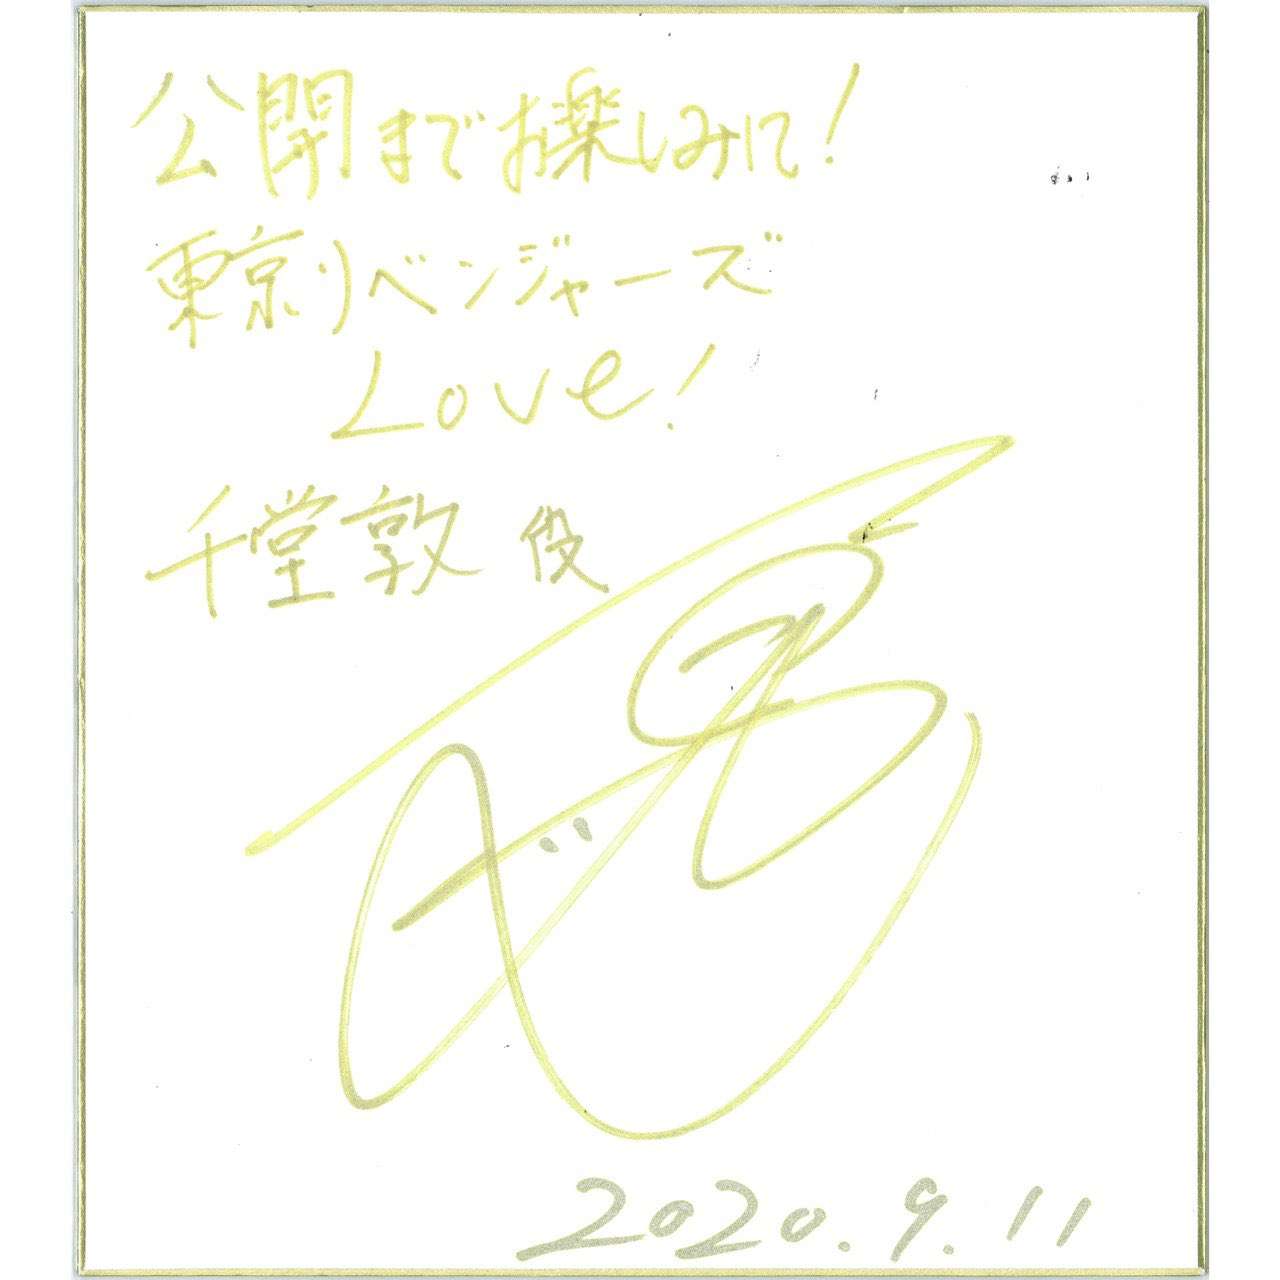 公開までお楽しみに!
東京リベンジャーズ
Love!
千堂敦 役
2020.9.11